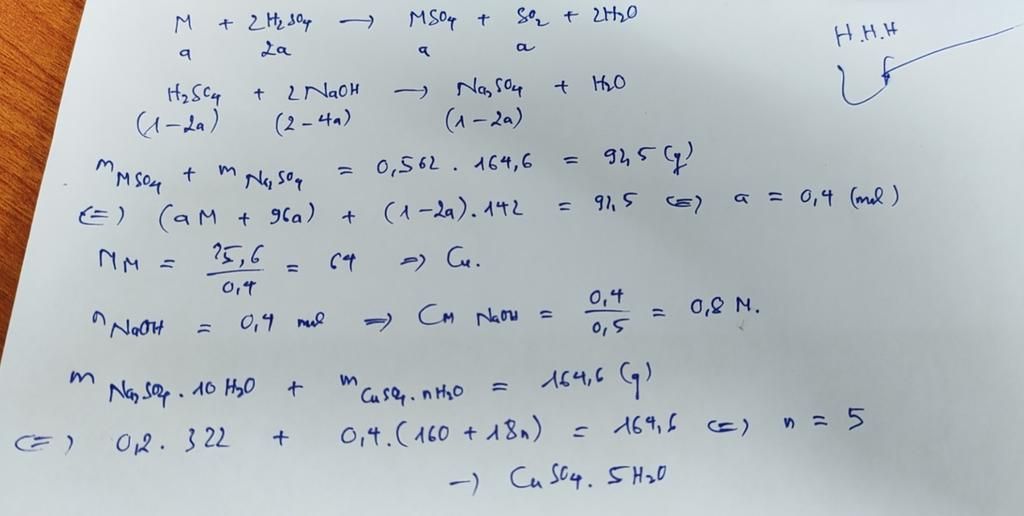 M + 2H₂SO₄ → MSO₄ + SO₂ + 2H₂O
a 2a a a
H.H.H
H₂SO₄ + 2NaOH → Na₂SO₄ + H₂O
(1-2a) (2-4a) (1-2a)
m MSO₄ + m Na₂SO₄ = 0,562 . 164,6 = 92,5 (g)
(=) (aM + 96a) + (1-2a).142 = 92,5 <=> a = 0,4 (mol)
MM = 25,6/0,4 = 64 => Cu.
n NaOH = 0,4 mol => CM NaOH = 0,4/0,5 = 0,8 M.
m Na₂SO₄.10H₂O + m CuSO₄.nH₂O = 164,6 (g)
<=> 0,2.322 + 0,4.(160 + 18n) = 164,6 <=> n = 5
→ CuSO₄.5H₂O